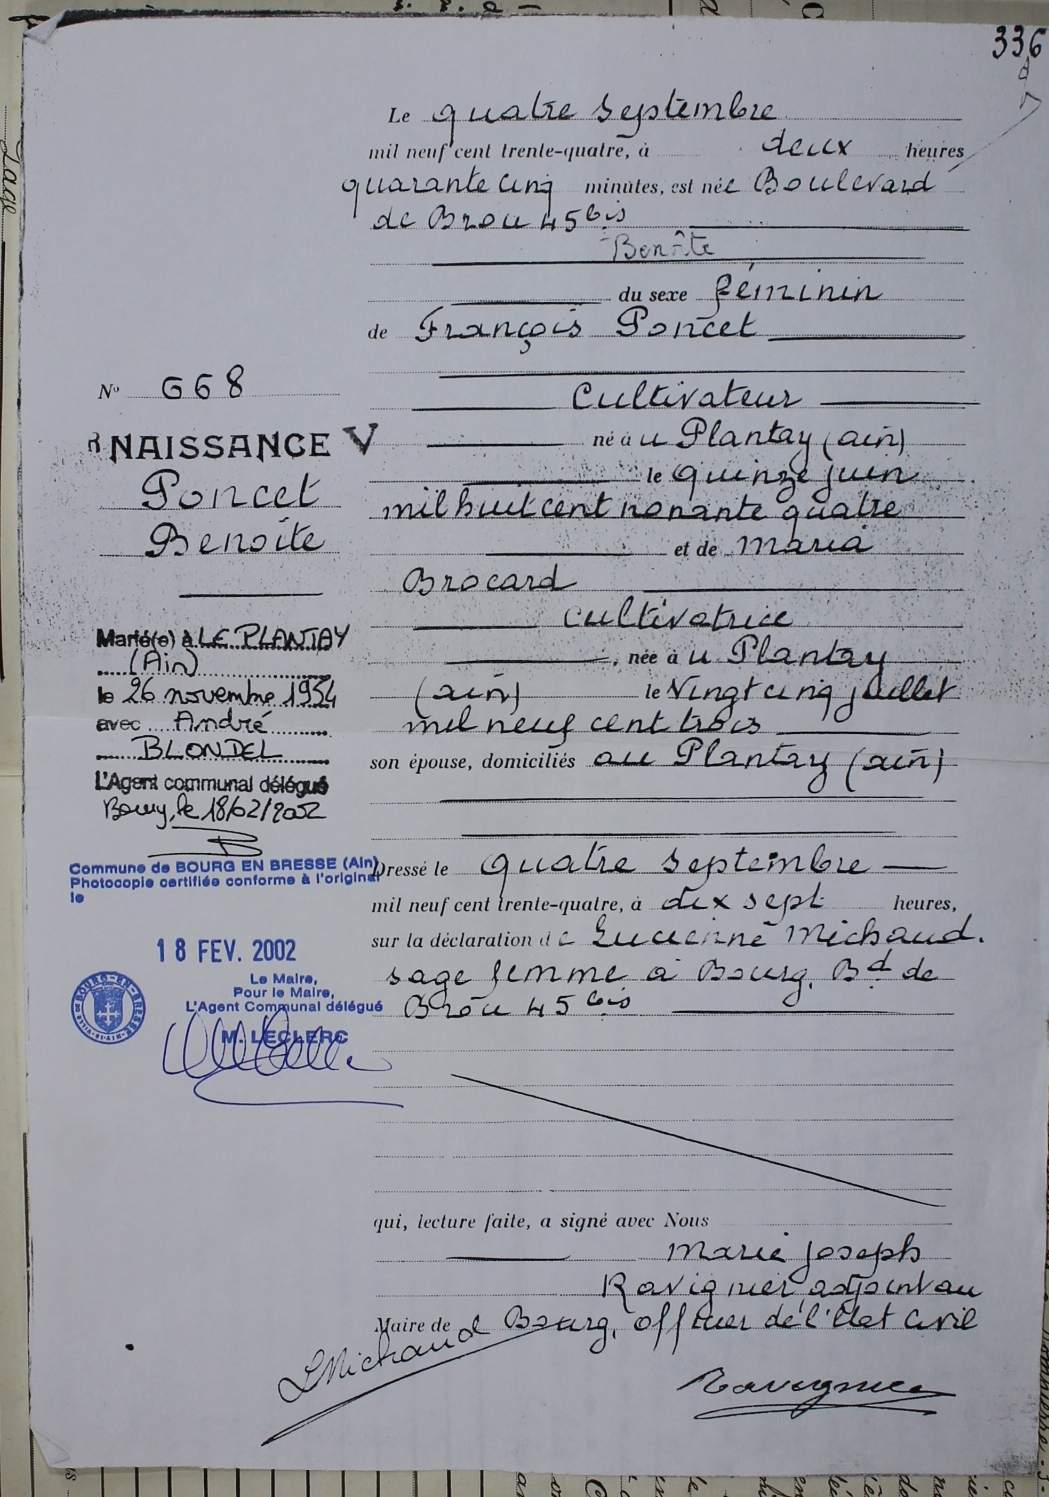 336
Le quatre septembre
mil neuf cent trente-quatre, à deux heures
quarante cinq minutes, est née Boulevard
de Brou 45 bis
Benoîte
du sexe féminin
de François Poncet
Cultivateur
né à u Plantay (ain)
le quinze juin
mil huit cent nonante quatre
et de Maria
Brocard
cultivatrice
, née à u Plantay
(ain) le Vingt cinq juillet
mil neuf cent trois
son épouse, domiciliés au Plantay (ain)
Dressé le quatre septembre
mil neuf cent trente-quatre, à dix sept heures,
sur la déclaration de Lucienne Michaud.
sage femme à Bourg, Bd de
Brou 45 bis
qui, lecture faite, a signé avec Nous
Marie Joseph
Ravignier, adjoint au
Maire de Bourg, officier de l'Etat Civil
LMichaud
Ravignier
No 668
NAISSANCE V
Poncet
Benoîte
Marié(e) à LE PLANTAY
(Ain)
le 26 novembre 1954
avec André
BLONDEL
L'Agent communal délégué
Bourg, le 18/02/2002
Commune de BOURG EN BRESSE (Ain)
Photocopie certifiée conforme à l'original
le
18 FEV. 2002
Le Maire,
Pour le Maire,
L'Agent Communal délégué
M. LECLERC